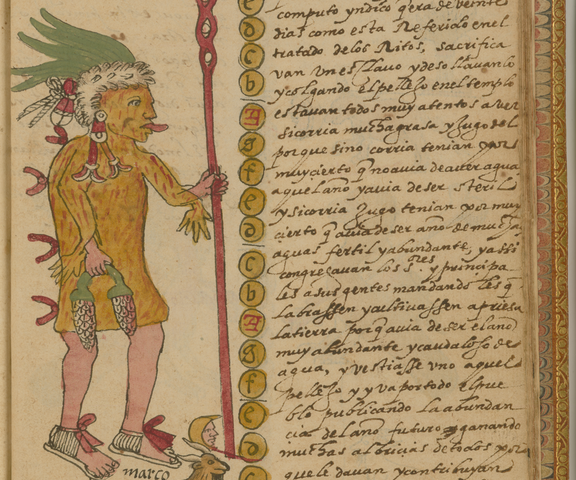 computo yndico q̃ era de veinte
dias como esta Referido en el
tratado de los Ritos, sacrifica
van un esclavo y desollavanlo
y colgando el pellejo en el templo
estavan todos muy atentos a ver
si corria mucha grasa y Jugo del
porque si no corria tenian por
muy cierto q̃ no avia de aver agua
aquel año y avia de ser steril
y si corria Jugo tenian por muy
cierto q̃ avia de ser año de mucha
aguas fertil y abundante, y assi
congregavan los sres. y principa
les a sus gentes mandando les q̃
labrassen y cultivassen apriesa
la tierra porq̃ avia de ser el año
muy abundante y caudaloso de
agua, y vestiasse uno aquel
pellejo y yva por todo el pue
blo publicando la abundan
cia del año futuro y ganando
muchas albricias de todos por
que le davan y contribuyan
d
c
b
A
g
f
e
d
c
b
A
g
f
e
d
c
março